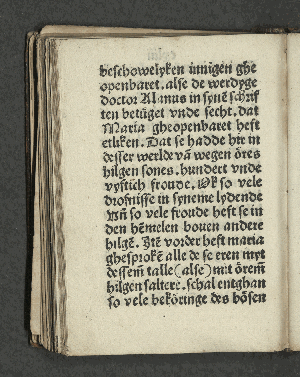 beschowelyken innigen ghe
openbaret. alse de werdyge
doctor Alanus in synē schrif
ten betüget vnde secht. dat
Maria gheopenbaret heft
etliken. Dat se hadde hir in
desser werlde vā wegen öres
hilgen sones. hundert vnde
vyftich froude. Ok so vele
drofnisse in syneme lydende
vn̄ so vele froude heft se in
den hēmelen bouen andere
hilgē. Itē vorder heft maria
ghesprokē alle de se eren myt
dessem̄ talle (alse) mit örem̄
hilgen saltere. schal entghan
so vele beköringe des bösen